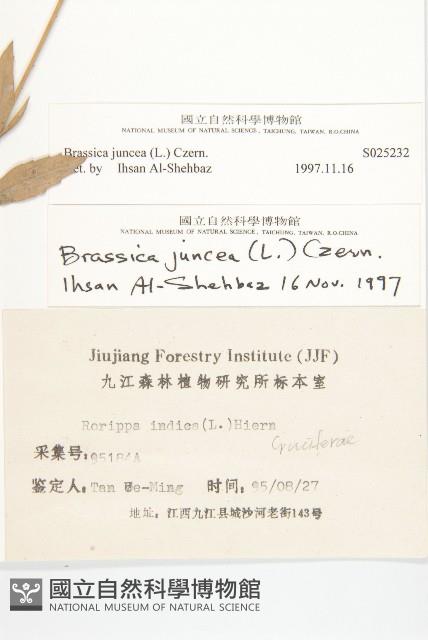 國立自然科學博物館
NATIONAL MUSEUM OF NATURAL SCIENCE, TAICHUNG, TAIWAN, R.O.CHINA
Brassica juncea (L.) Czern. S025232
Det. by Ihsan Al-Shehbaz 1997.11.16
國立自然科學博物館
NATIONAL MUSEUM OF NATURAL SCIENCE, TAICHUNG, TAIWAN, R.O.CHINA
Brassica juncea (L.) Czern.
Ihsan Al-Shehbaz 16 Nov. 1997
Jiujiang Forestry Institute (JJF)
九江森林植物研究所标本室
Rorippa indica(L.)Hiern
Cruciferae
采集号:95184A
鉴定人:Tan Ce-Ming 时间:95/08/27
地址:江西九江县城沙河老街143号
國立自然科學博物館
NATIONAL MUSEUM OF NATURAL SCIENCE